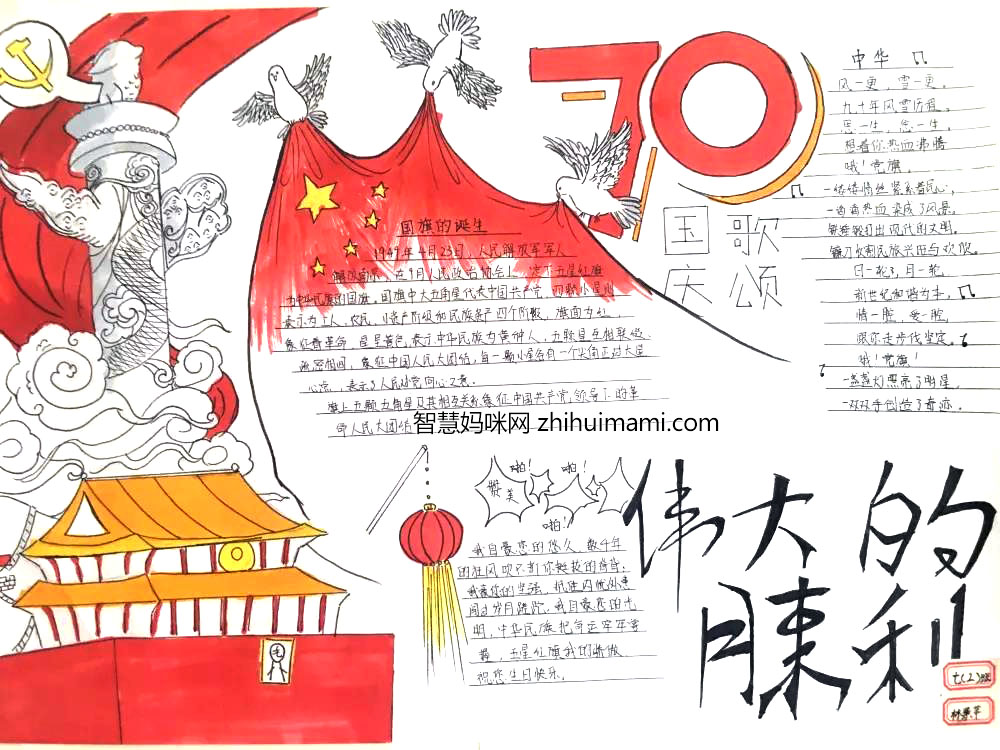 70
国歌
庆颂
国旗的诞生
1949年4月23日,人民解放军军人
解放南京,在9月人民政治协会上,决定五星红旗
为中华民族的国旗。国旗中大五角星代表中国共产党,四颗小星则
表示为工人、农民、小资产阶级和民族资产四个阶级,旗面为红,
象征着革命,星呈黄色,表示中华民族为黄种人,五颗星互相联缀、
疏密相间,象征中国人民大团结,每一颗小星各有一个尖角正对大星
心点,表示了人民对党向心之意。
旗上五颗五角星及其相互关系象征中国共产党领导下的革
命人民大团结
智慧妈咪网 zhihuimami.com
中华
风一更,雪一更。
九十年风雪历程。
思一生,念一生。
想着你热血沸腾
哦!党旗。
一缕缕情丝紧系着民心,
新世纪和谐为本,
情一腔,爱一腔,
跟你走步伐坚定。
哦!党旗!
一盏盏灯照亮了明星,
一双双手创造了奇迹。
赞美
啪!
啪!
啪!
我自豪您的悠久,数千年
的狂风吹不折你挺拔的脊背;
我自豪您的光
明,中华民族把命运牢牢掌
握,五星红旗我的骄傲
祝您生日快乐。
伟大的
胜利
七(2)班